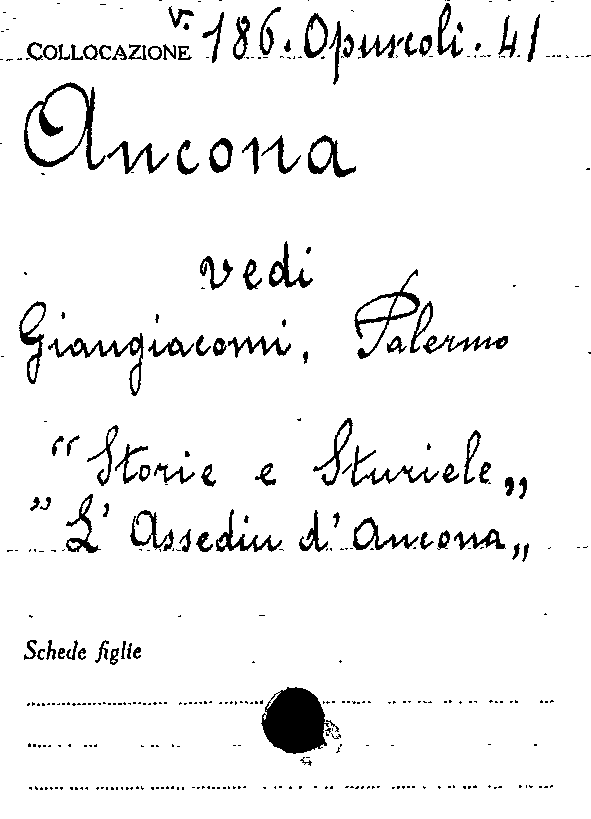 COLLOCAZIONE v. 186. Opuscoli. 41
Ancona
vedi
Giangiacomi, Palermo
"Storie e Sturiele„
"L' Assediu d' Ancona„
Schede figlie